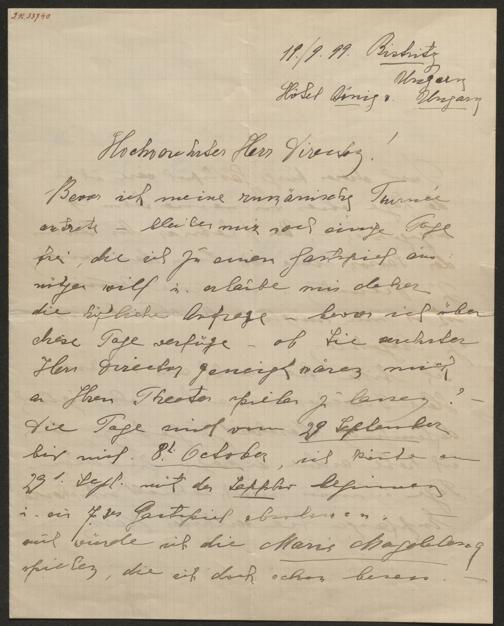 18./9. 99. Bistritz
Ungarn
Hôtel König v. Ungarn
Hochverehrter Herr Director!
Bevor ich meine rumänische Tournée
antrete – bleiben mir noch einige Tage
frei, die ich zu einem Gastspiel aus
nützen will u. erlaube mir daher
die höfliche Anfrage – bevor ich über
diese Tage verfüge – ob Sie verehrter
Herr Director geneigt wären mich
an Ihrem Theater spielen zu lassen? –
Die Tage sind vom 29 September
bis incl. 8t. October, ich könnte am
29t. Sept. mit der Sappho beginnen
u. ein Gastspiel
würde ich die Maria Magdalena
spielen, die ich doch schon